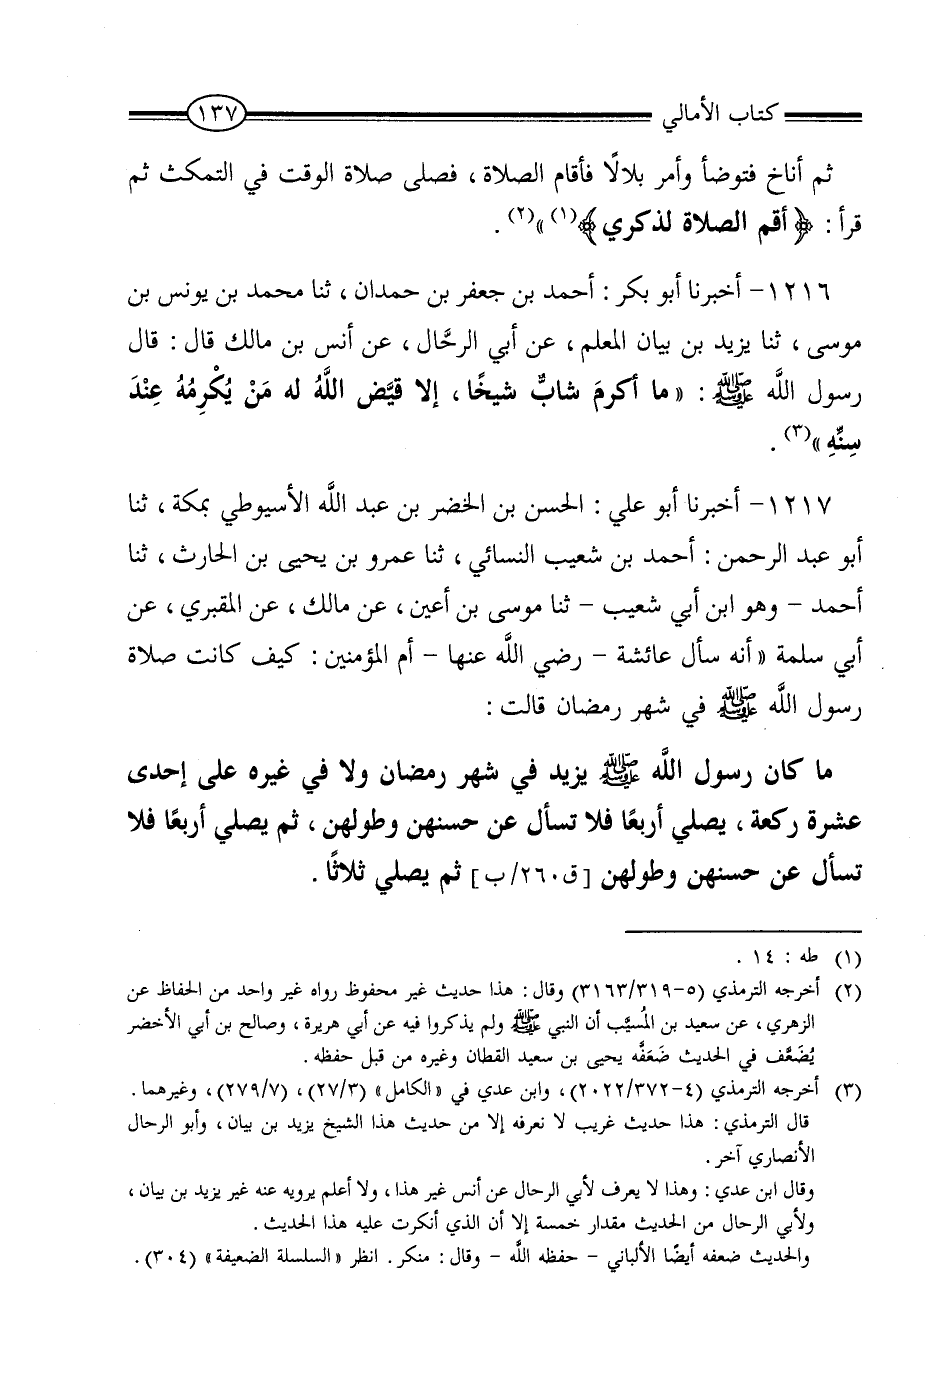 كتاب الأمالي ١٣٧
ثم أناخ فتوضأ وأمر بلالًا فأقام الصلاة ، فصلى صلاة الوقت في التمكث ثم
قرأ : ﴿أقم الصلاة لذكري﴾(١)»(٢) .
١٢١٦- أخبرنا أبو بكر : أحمد بن جعفر بن حمدان ، ثنا محمد بن يونس بن
موسى ، ثنا يزيد بن بيان المعلم ، عن أبي الرحَّال ، عن أنس بن مالك قال : قال
رسول اللَّه ﷺ : « ما أكرمَ شابٌّ شيخًا ، إلا قيَّض اللَّهُ له مَنْ يُكْرِمُهُ عِنْدَ
سِنِّهِ »(٣) .
١٢١٧- أخبرنا أبو علي : الحسن بن الخضر بن عبد اللَّه الأسيوطي بمكة ، ثنا
أبو عبد الرحمن : أحمد بن شعيب النسائي ، ثنا عمرو بن يحيى بن الحارث ، ثنا
أحمد - وهو ابن أبي شعيب - ثنا موسى بن أعين ، عن مالك ، عن المقبري ، عن
أبي سلمة « أنه سأل عائشة - رضي اللَّه عنها - أم المؤمنين : كيف كانت صلاة
رسول اللَّه ﷺ في شهر رمضان قالت :
ما كان رسول اللَّه ﷺ يزيد في شهر رمضان ولا في غيره على إحدى
عشرة ركعة ، يصلي أربعًا فلا تسأل عن حسنهن وطولهن ، ثم يصلي أربعًا فلا
تسأل عن حسنهن وطولهن [ ق٢٦٠/ب ] ثم يصلي ثلاثًا .
(١) طه : ١٤ .
(٢) أخرجه الترمذي (٥-٣١٦٣/٣١٩) وقال : هذا حديث غير محفوظ رواه غير واحد من الحفاظ عن
الزهري ، عن سعيد بن المُسيَّب أن النبي ﷺ ولم يذكروا فيه عن أبي هريرة ، وصالح بن أبي الأخضر
يُضَعَّف في الحديث ضَعَفَّه يحيى بن سعيد القطان وغيره من قبل حفظه .
(٣) أخرجه الترمذي (٤-٢٠٢٢/٣٧٢)، وابن عدي في «الكامل» (٢٧/٣) ، (٢٧٩/٧) ، وغيرهما .
قال الترمذي : هذا حديث غريب لا نعرفه إلا من حديث هذا الشيخ يزيد بن بيان ، وأبو الرحال
الأنصاري آخر .
وقال ابن عدي : وهذا لا يعرف لأبي الرحال عن أنس غير هذا ، ولا أعلم يرويه عنه غير يزيد بن بيان ،
ولأبي الرحال من الحديث مقدار خمسة إلا أن الذي أنكرت عليه هذا الحديث .
والحديث ضعفه أيضًا الألباني - حفظه اللَّه - وقال : منكر . انظر « السلسلة الضعيفة » (٣٠٤) .